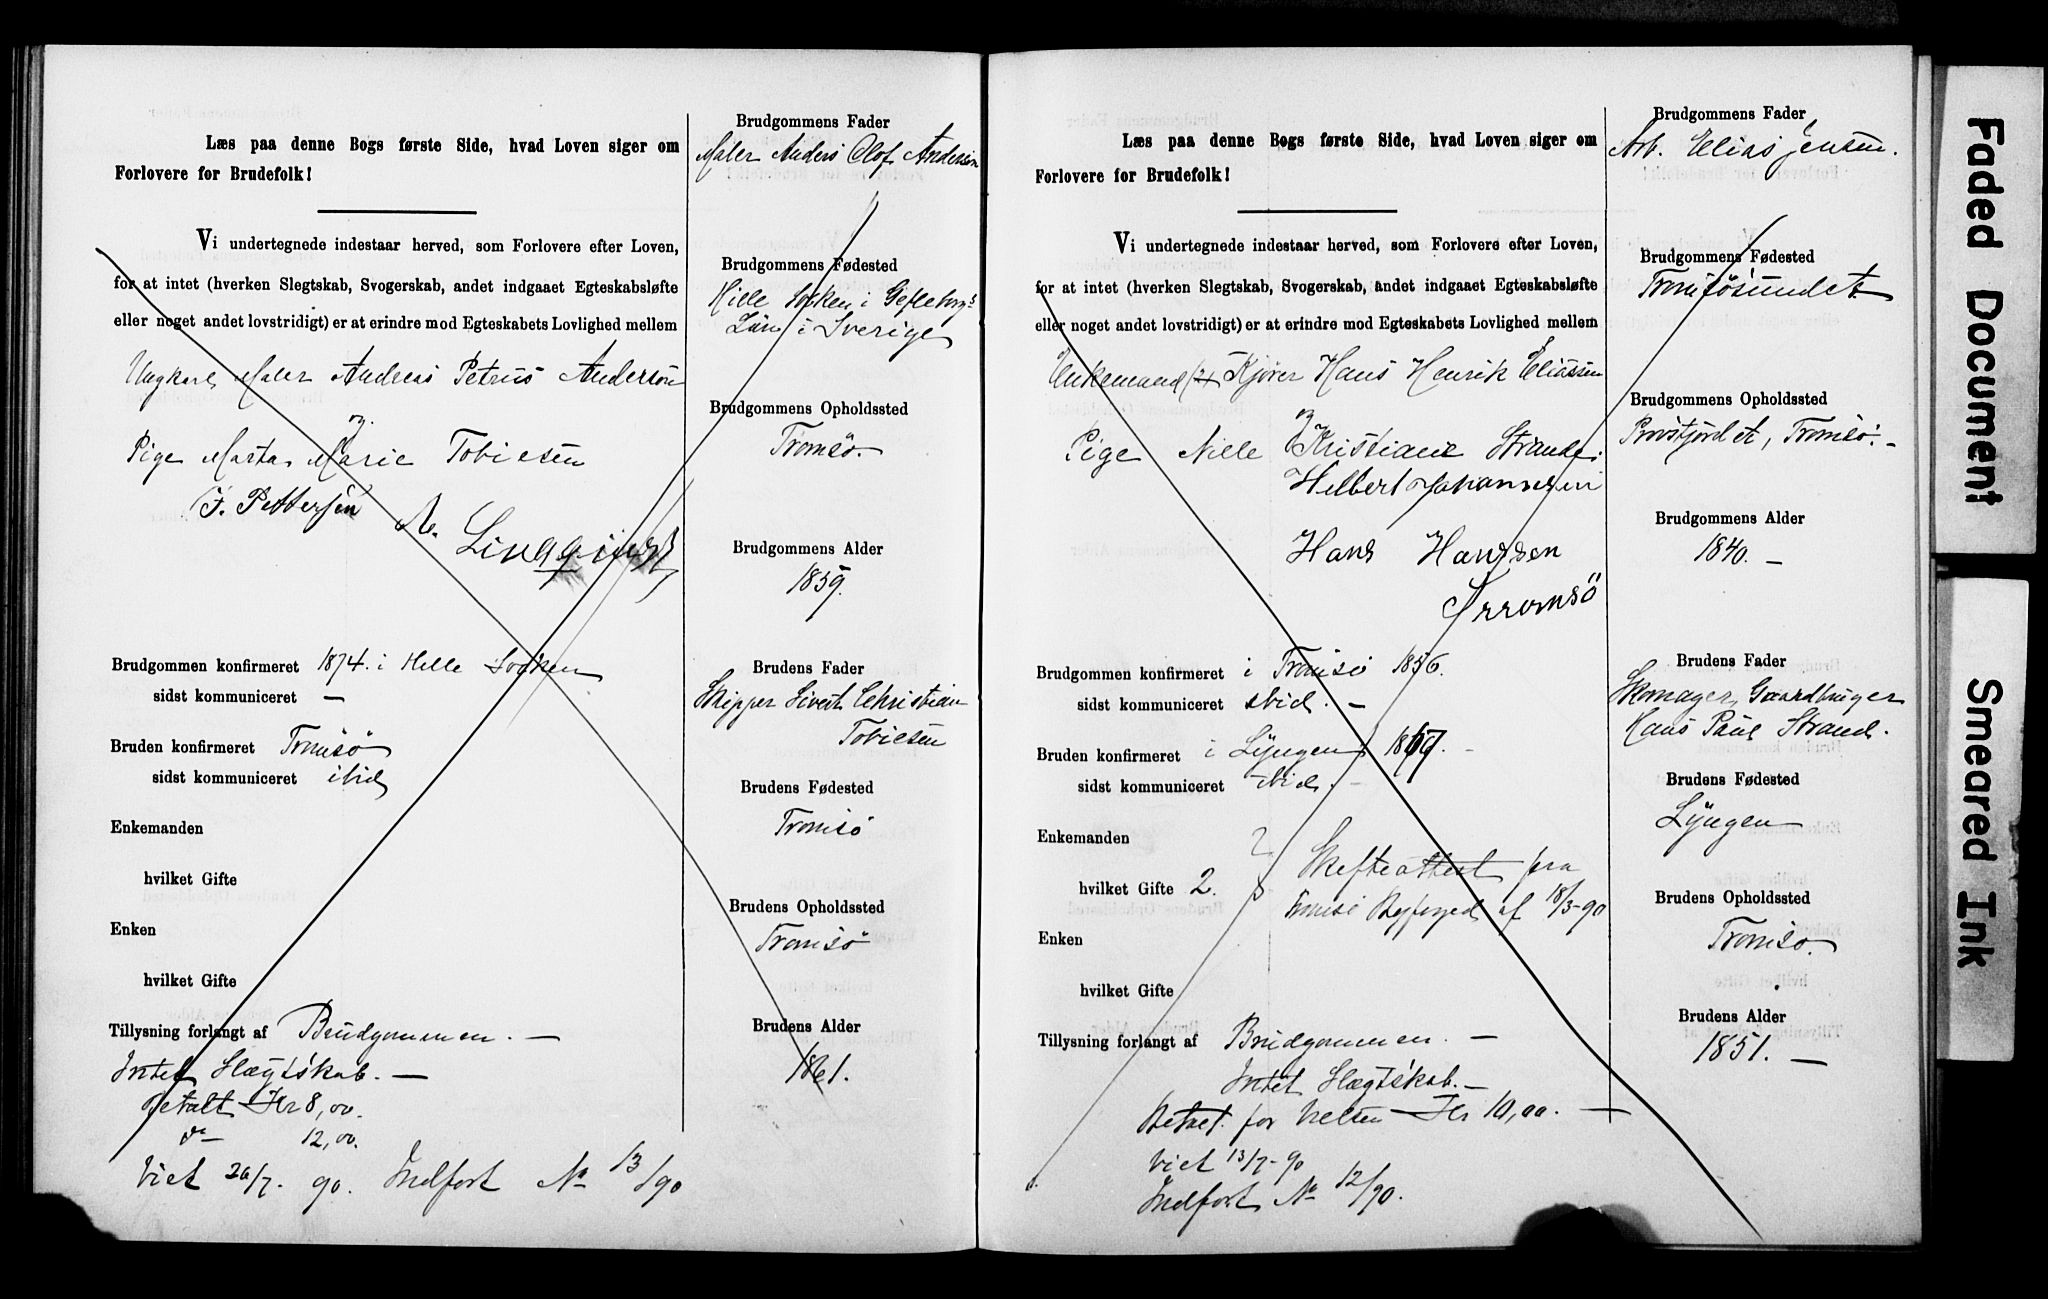 Læs paa denne Bogs første Side, hvad Loven siger om
Forlovere for Brudefolk!
Vi undertegnede indestaar herved, som Forlovere efter Loven,
for at intet (hverken Slegtskab, Svogerskab, andet indgaaet Egteskabsløfte
eller noget andet lovstridigt) er at erindre mod Egteskabets Lovlighed mellem
Ungkarl Maler Andreas Petrus Anderson
og
Pige Marta Marie Tobiesen
F. Pettersen
Brudgommen konfirmeret 1874. i Hille Socken
sidst kommuniceret —
Bruden konfirmeret Tromsø
sidst kommuniceret ibid
Enkemanden
hvilket Gifte
Enken
hvilket Gifte
Tillysning forlangt af Brudgommen. —
Intet Slægtskab. —
Betalt Kr 8,00.
do 12,00.
Viet 26/7. 90. Indført No 13/90
Brudgommens Fader
Maler Anders Olof Anderson
Brudgommens Fødested
Hille Socken i Gefleborgs
Län i Sverige
Brudgommens Opholdssted
Tromsø.
Brudgommens Alder
1859.
Brudens Fader
Skipper Sivert Christian
Tobiesen
Brudens Fødested
Tromsø
Brudens Opholdssted
Tromsø
Brudens Alder
1861.
Læs paa denne Bogs første Side, hvad Loven siger om
Forlovere for Brudefolk!
Vi undertegnede indestaar herved, som Forlovere efter Loven,
for at intet (hverken Slegtskab, Svogerskab, andet indgaaet Egteskabsløfte
eller noget andet lovstridigt) er at erindre mod Egteskabets Lovlighed mellem
Enkemand (2) Kjører Hans Henrik Eliassen
og
Pige Nille Kristiane Strand.
Hilbert Johannesen
Hans Hanssen
Tromsö
Brudgommen konfirmeret i Tromsø 1856.
sidst kommuniceret ibid. —
Bruden konfirmeret i Lyngen 1867. —
sidst kommuniceret ibid. —
Enkemanden
hvilket Gifte 2. Skifteattest fra
Tromsø Byfoged af 18/3-90
Enken
hvilket Gifte
Tillysning forlangt af Brudgommen. —
Intet Slægtskab. —
Betalt for Vielsen Kr 10,00. —
Viet 13/7-90
Indført No 12/90.
Brudgommens Fader
Arb. Elias Jensen.
Brudgommens Fødested
Tromsøsundet
Brudgommens Opholdssted
Provstjordet, Tromsø. —
Brudgommens Alder
1840. —
Brudens Fader
Skomager, Gaardbruger
Hans Paul Strand.
Brudens Fødested
Lyngen
Brudens Opholdssted
Tromsø.
Brudens Alder
1851. —
Faded Document
Smeared Ink